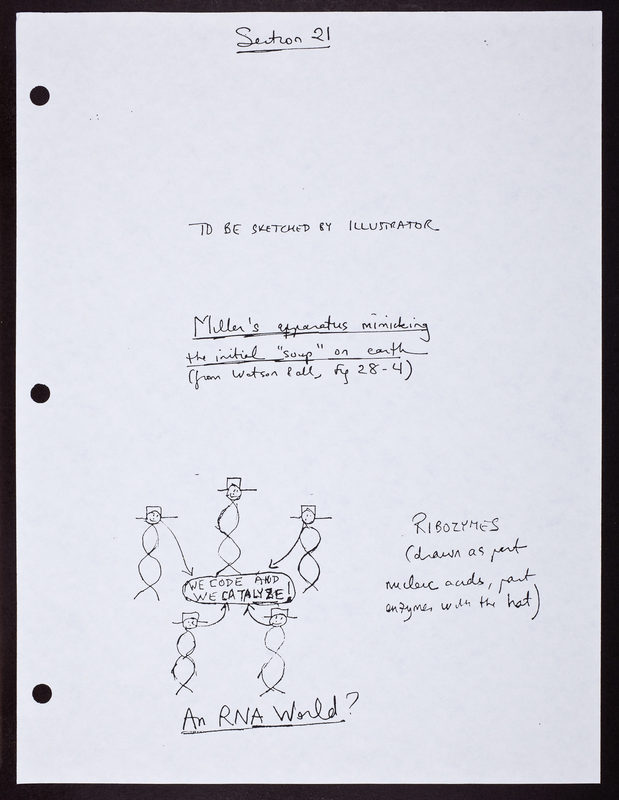 Section 21
TO BE SKETCHED BY ILLUSTRATOR
Miller's apparatus mimicking
the initial "soup" on earth
(from Watson & all, fig 28-4)
WE CODE AND
WE CATALYZE!
RIBOZYMES
(drawn as part
nucleic acids, part
enzymes with the hat)
An RNA World?